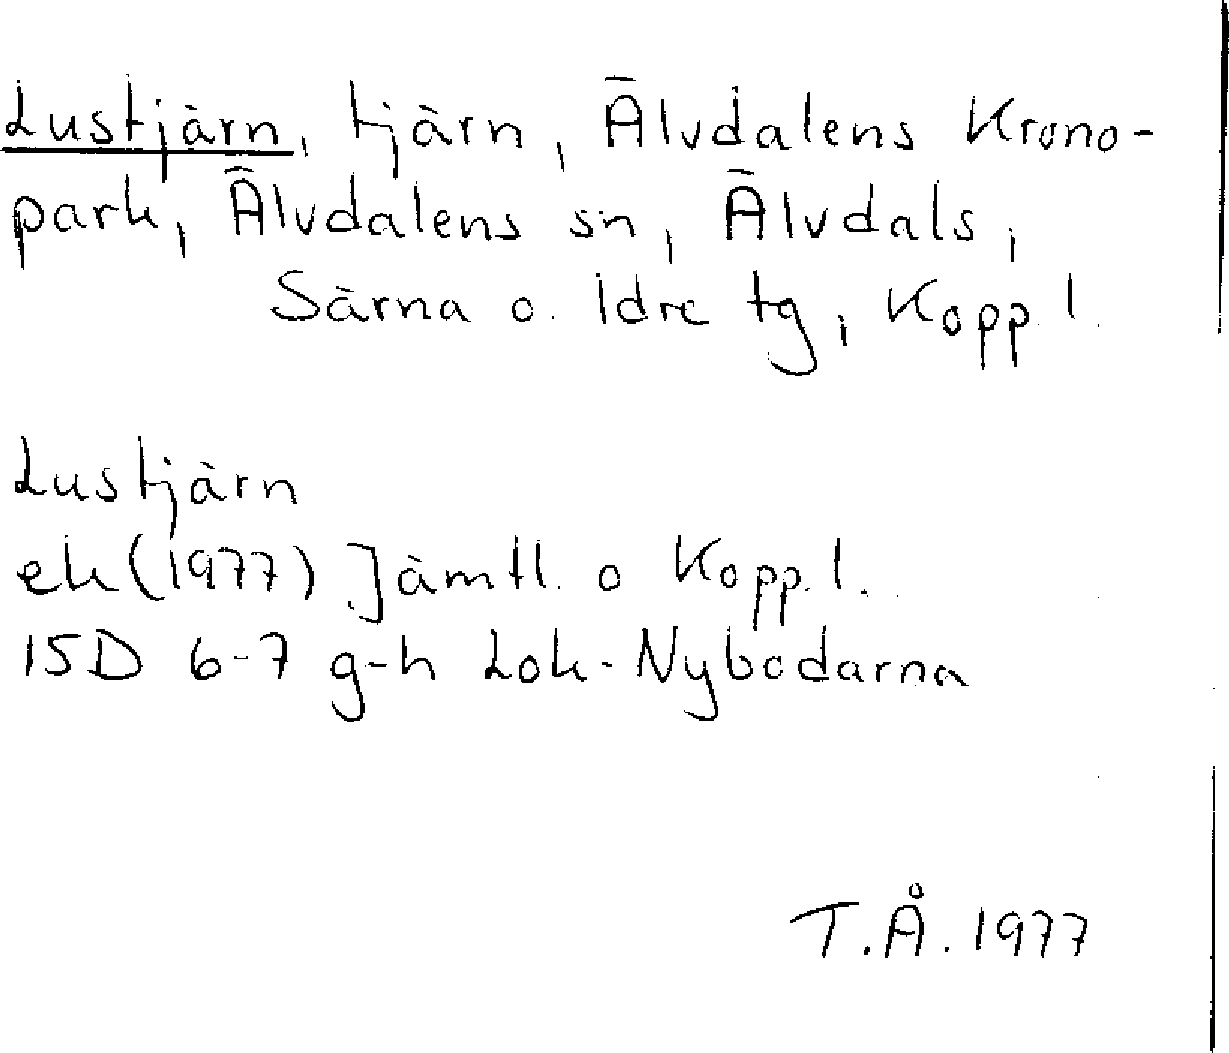 Lustjärn, tjärn, Älvdalens Krono-
park, Älvdalens sn, Älvdals,
Särna o. Idre tg, Kopp. l.
Lustjärn
ek (1977) Jämtl. o Kopp. l.
15D 6-7 g-h Lok-Nybodarna
T.Å. 1977